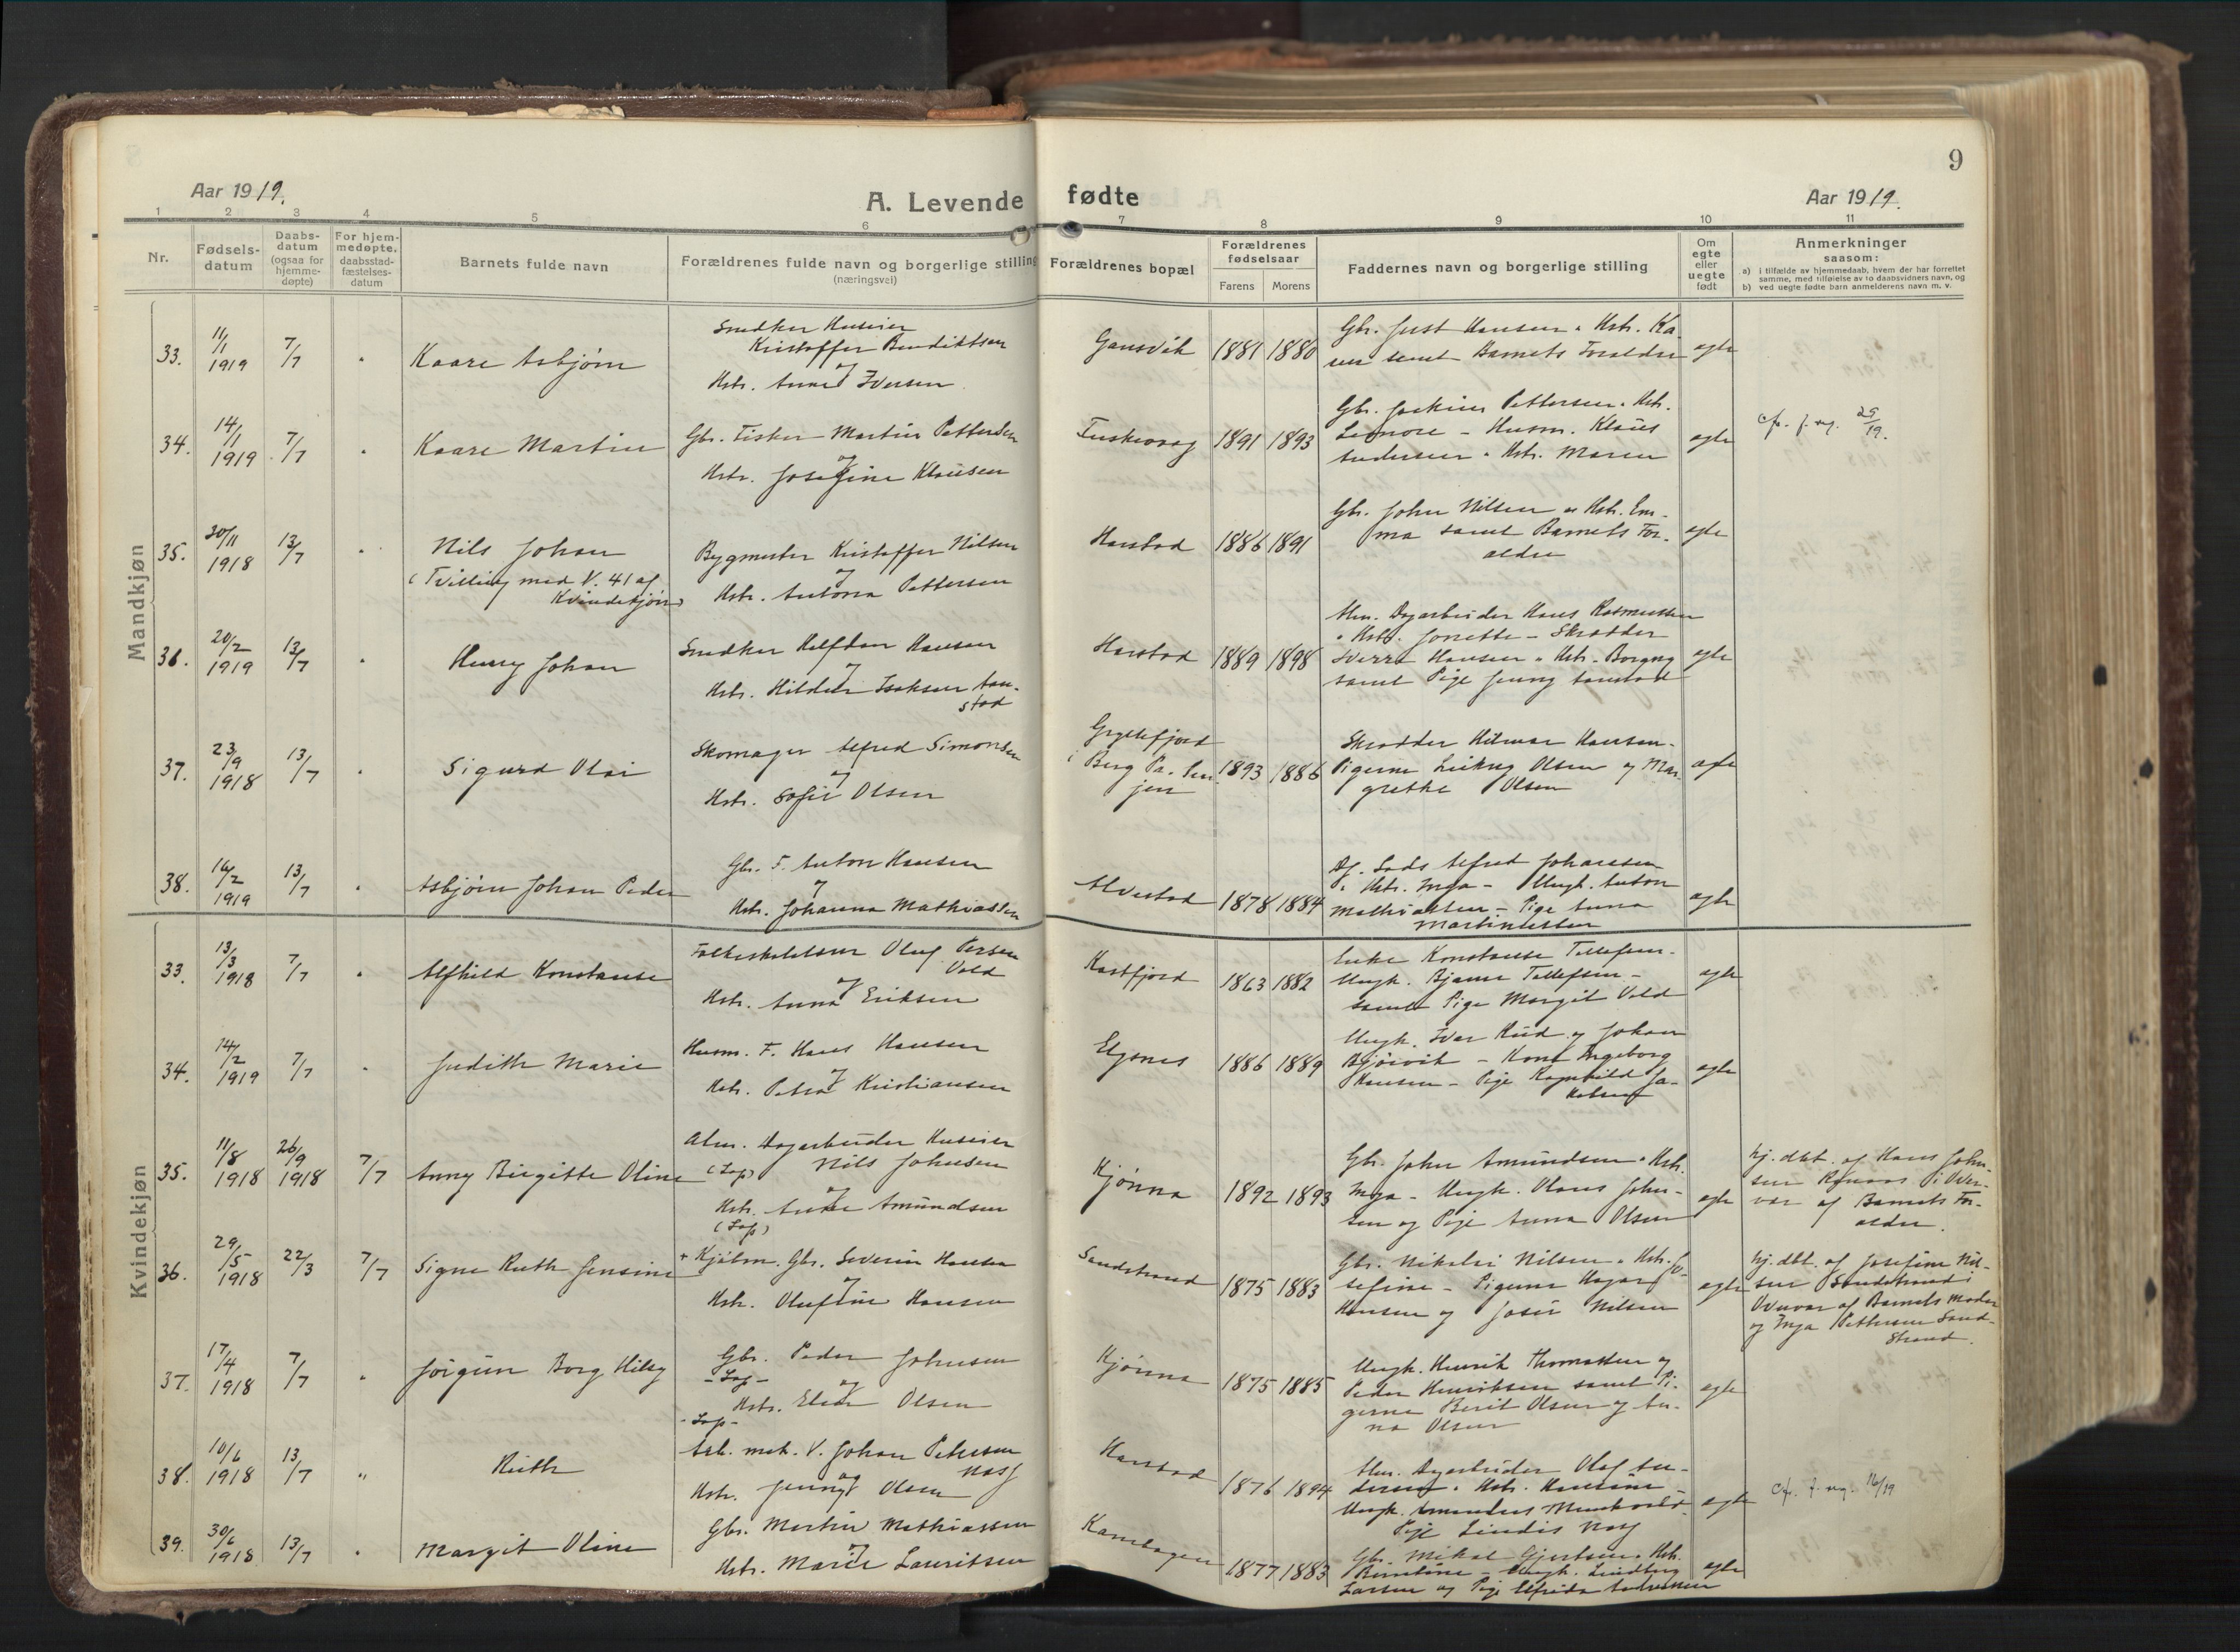 9
Aar 1919.
A. Levende fødte
Aar 1919.
1 2 3 4 5 6 7 8 9 10 11
Nr.
Fødsels-
datum
Daabs-
datum
(ogsaa for
hjemme-
døpte)
For hjem-
medøpte,
daabsstad-
fæstelses-
datum
Barnets fulde navn
Forældrenes fulde navn og borgerlige stilling
(næringsvei)
Forældrenes bopæl
Forældrenes
fødselsaar
Farens Morens
Faddernes navn og borgerlige stilling
Om
egte
eller
uegte
født
Anmerkninger
saasom:
a) i tilfælde av hjemmedaab, hvem der har forrettet
samme, med tilføielse av to daabsvidners navn, og
b) ved uegte fødte barn anmelderens navn m. v.
Mandkjøn
33. 11/1 1919 7/7 Kaare Asbjørn
Snedker Huseier
Kristoffer Bendiktsen
og
Hstr. Anna Iversen
Gansvik 1881 1880
Gbr. Just Hansen Hstr. Ka-
ren samt Barnets Foreldre
egte
34. 14/1 1919 7/7 Kaare Martin
Gbr. Fisker Martin Pettersen
og
Hstr. Josefine Klausen
Fuskevaag 1891 1893
Gbr. Joakim Pettersen Hstr.
Leonore - Husm. Klaus
Andersen Hstr. Maren
egte
cfr. f. 25/19.
35. 30/11 1918 13/7 Nils Johan
(Tvilling med N. 41 af
Kvindekjøn)
Bygmester Kristoffer Nilsen
og
Hstr. Antona Pettersen
Harstad 1886 1891
Gbr. Johan Nilsen Hstr. Em-
ma samt Barnets For-
eldre
egte
36. 20/2 1919 13/7 Henry Johan
Snedker Halfdan Hansen
og
Hstr. Hilda Isaksen Aan-
stad
Harstad 1889 1898
Alm. Dagarbeider Hans Rasmussen
Hstr. Jonette - Skrædder
Sverre Hansen Hstr. Borgny
samt Pige Jenny Aanstad
egte
37. 23/9 1918 13/7 Sigurd Olai
Skomager Alfred Simonsen
og
Hstr. Sofie Olsen
Gryllefjord
i Berg Pr. Sen-
jen
1893 1886
Skrædder Hilmar Hansen -
Pigerne Olsen og Mar-
grethe Olsen
egte
38. 16/2 1919 13/7 Asbjørn Johan Peder
Gbr. F. Anton Hansen
og
Hstr. Johanna Mathiassen
Alvestad 1878 1884
Alfred Johanssen
Hstr. Inga - Ungk. Anton
Mathiassen - Pige Anna
Martinussen
egte
Kvindekjøn
33. 13/3 1918 7/7 Alfhild Konstanse
Oluf Persen
Vold
og
Hstr. Anna Eriksen
Kasfjord 1863 1882
Enke Konstanse Tellefsen -
Ungk. Bjarne Tellefsen -
samt Pige Margit Vold
egte
34. 14/2 1919 7/7 Judith Marie
Husm. F. Hans Hansen
og
Hstr. Petra Kristiansen
Elgsnes 1886 1889
Ungk. Ivar Rud og Johan
- Kone Ingeborg
Hansen - Pige Ragnhild Ja-
kobsen
egte
35. 11/8 1918 26/9 1918 7/7 Anny Birgitte Oline
Alm. Dagarbeider Huseier
(Lap) Nils Johnsen
og
Hstr. Amundsen
(Lap)
Kjønna 1892 1893
Gbr. John Amundsen Hstr.
Inga - Ungk. Olaus John-
sen og Pige Anna Olsen
egte
hj. dbt. af Hans John-
sen i Over-
vær af Barnets For-
eldre.
36. 29/5 1918 22/3 7/7 Signe Ruth Jensine
+ Kjølm. Gbr. Severin Hansen
og
Hstr. Olufine Hansen
Sandstrand 1875 1883
Gbr. Nikolai Nilsen Hstr. Jo-
sefine - Pigerne Hagar
Hansen og Josie Nilsen
egte
hj. dbt. af Josefine Nil-
sen Sandstrand i
Overvær af Barnets Moder
og Inga Pettersen Sand-
strand.
37. 17/4 1918 7/7 Jørgine Borg Hilly
Gbr. Peder Johnsen
- Lap -
og
Hstr. Olsen
- Lap -
Kjønna 1875 1885
Ungk. Henrik Thomassen og
Peder Henriksen samt Pi-
gerne Berit Olsen og An-
na Olsen
egte
38. 10/6 1918 13/7 Ruth
Arb. mek. V. Johan Petersen
Næss
og
Hstr. Jenny Olsen
Harstad 1876 1894
Alm. Dagarbeider Olaf An-
dersen Hstr. Hansine -
Ungk. Amandus -
Pige Lindis Næss
egte
cfr. f. 16/19
39. 30/6 1918 13/7 Margit Oline
Gbr. Martin Mathiassen
og
Hstr. Marie Lauritsen
Kanebogen 1877 1883
Gbr. Mikal Gjertsen Hstr.
- Ungk. Lindberg
Larsen og Pige Elfrida
egte